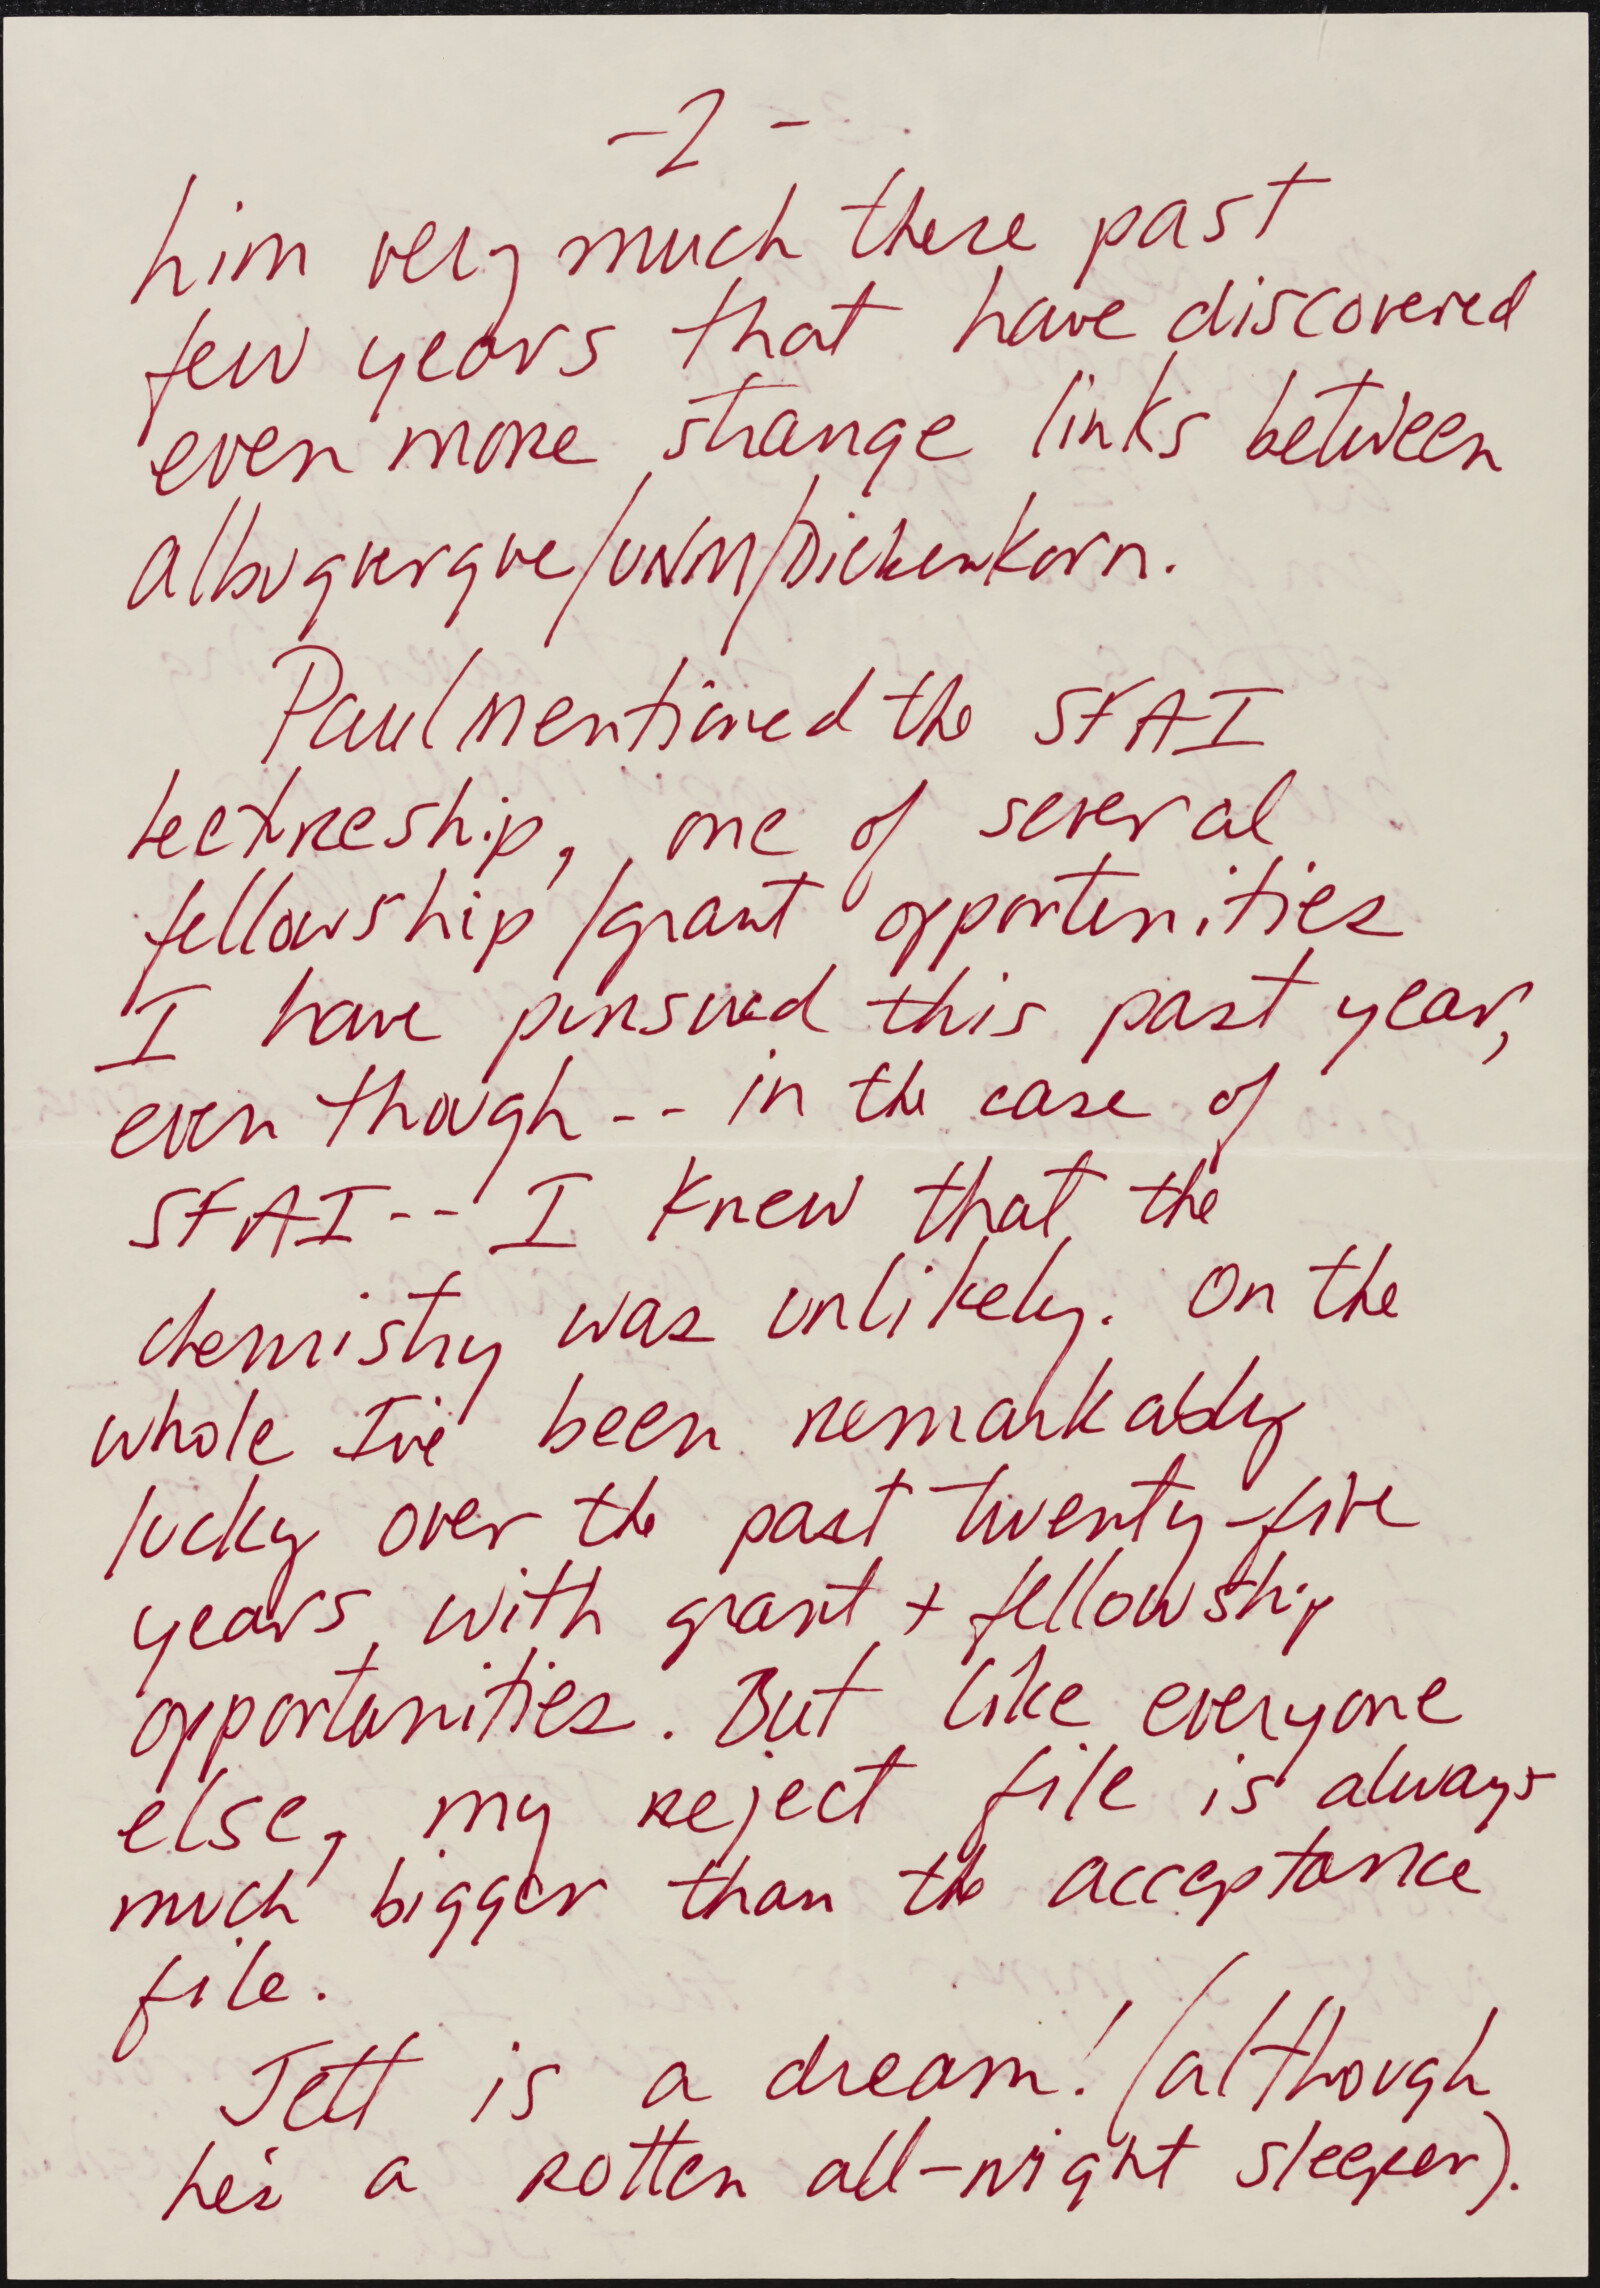 -2-
him very much these past
few years that have discovered
even more strange links between
Albuquerque/UNM/Diebenkorn.
Paul mentioned the SFAI
lectureship, one of several
fellowship/grant opportunities
I have pursued this past year,
even though -- in the case of
SFAI -- I knew that the
chemistry was unlikely. On the
whole I've been remarkably
lucky over the past twenty-five
years with grant + fellowship
opportunities. But like everyone
else, my reject file is always
much bigger than the acceptance
file.
Jett is a dream! (although
he's a rotten all-night sleeper).